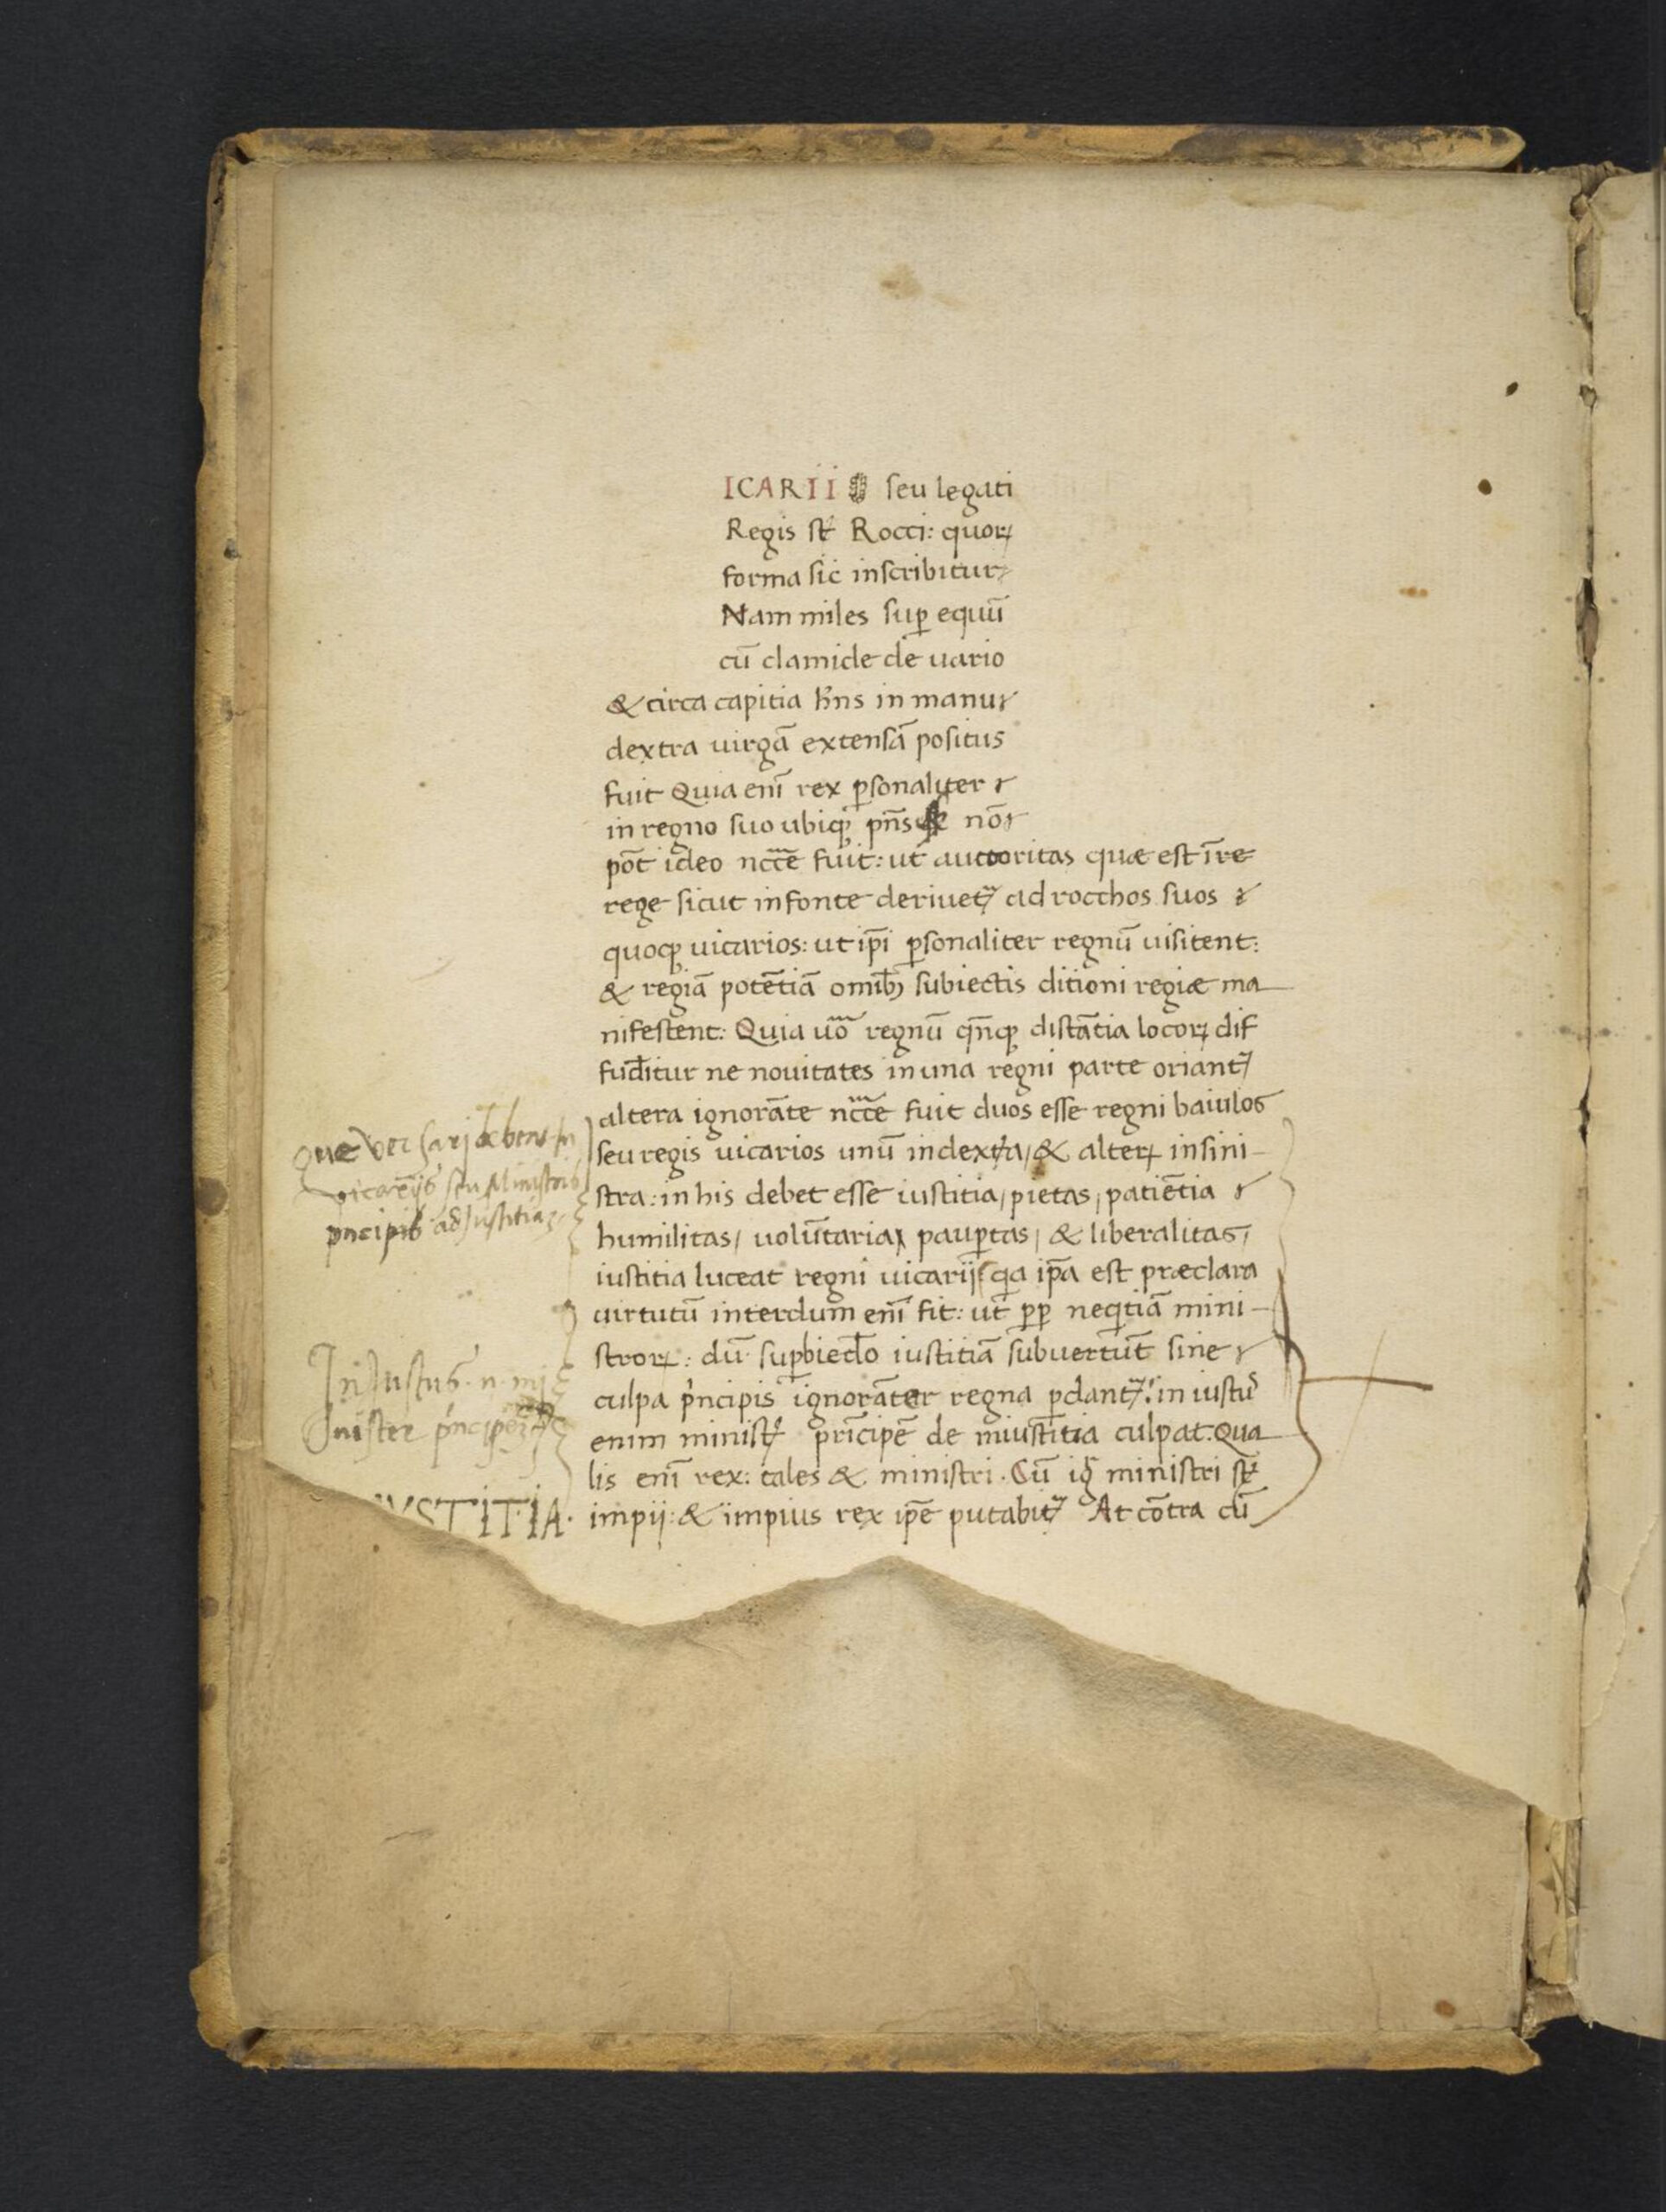 ICARII seu legati
Regis st̄ Rocci: quoꝝ
forma sic inscribitur
Nam miles suꝑ equū
cū clamide de uario
& circa capitia hn̄s in manu
dextra uirgā extensā positus
fuit Quia eni̅ rex ꝑsonaliter
in regno suo ubiqꝫ pn̄s nō
pōt ideo nccē fuit: ut auctoritas quæ est i̅ re
rege sicut in fonte deriuet᷑ ad rocchos suos
quoqꝫ uicarios: ut ip̄i ꝑsonaliter regnū uisitent:
& regiā potētiā omībꝫ subiectis ditioni regiæ ma
nifestent: Quia uō regnū qn̄qꝫ distātia locoꝝ dif
fūditur ne nouitates in una regni parte oriant᷑
altera ignorāte nccē fuit duos esse regni baiulos
seu regis uicarios unū in dextra, & alteꝝ in sini-
stra: in his debet esse iustitia, pietas, patiētia
humilitas, volūtaria pauꝑtas, & liberalitas,
iustitia luceat regni uicarij qa ip̄a est præclara
uirtutū interdum eni̅ fit: ut ꝓꝑ neqtiā mini-
stroꝝ: dū suꝑbiedo iustitiā subuertūt sine
culpa pncipis ignorāter regna ꝑdant᷑: in iustu᷑
enim minist᷑ pri̅cipē de iniustitia culpat: Qua
lis eni̅ rex: tales & ministri. Cū ig̅ ministri st̄
impij: & impius rex ip̄e putabit᷑ At cōtra cū
Que versari debent in
vicarijs seu Ministris
pncipis ad Justitiaꝫ
Iniustus .n. mi
nister pncipeꝫ
VSTITIA.